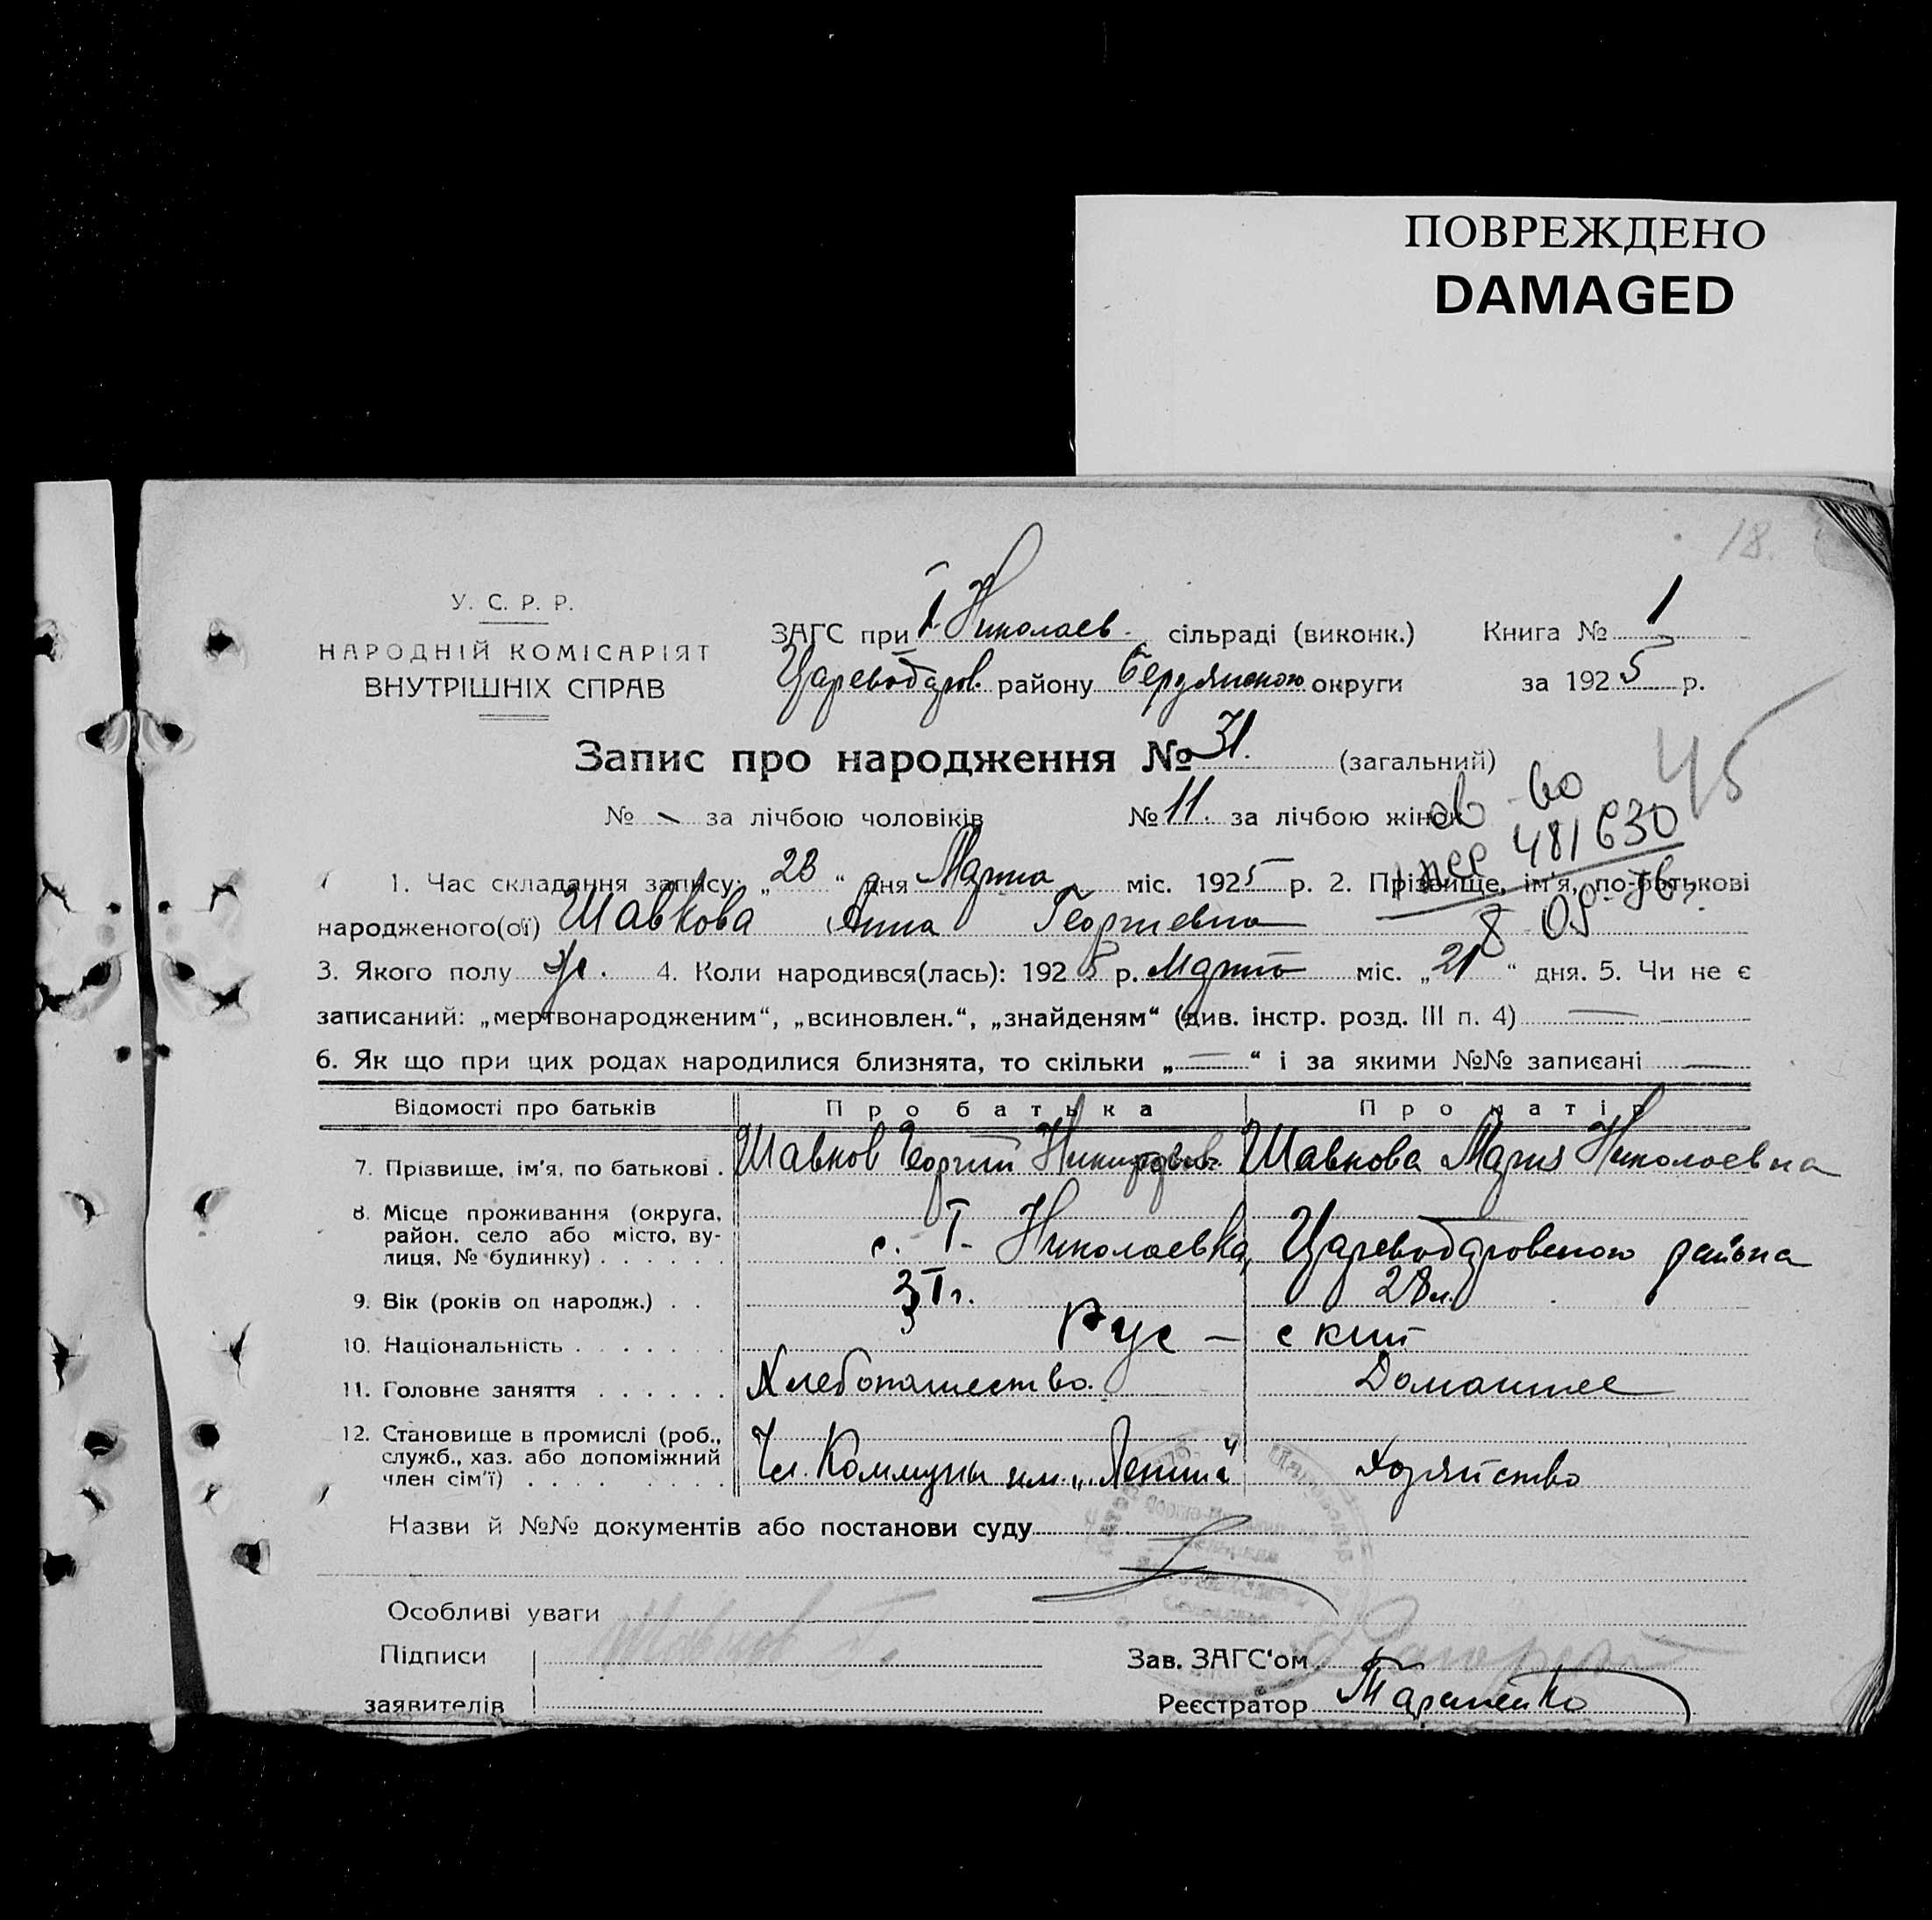 ПОВРЕЖДЕНО
DAMAGED
18.
У. С. Р. Р.
НАРОДНІЙ КОМІСАРІЯТ
ВНУТРІШНІХ СПРАВ
ЗАГС при І Николаев. сільраді (виконк.) Книга № 1
Цареводаров. району Бердянского округи за 1925 р.
Запис про народження № 31. (загальний)
45
№ - за лічбою чоловіків № 11. за лічбою жінок
481630
1. Час складання запису: „23“ дня Марта міс. 1925 р. 2. Прізвище, ім'я, по-батькові
народженого(ої) Шавкова Анна Георгиевна
3. Якого полу ж. 4. Коли народився(лась): 1925 р. Марта міс. „21“ дня. 5. Чи не є
записаний: „мертвонародженим“, „всиновлен.“, „знайденям“ (див. інстр. розд. III п. 4) —
6. Як що при цих родах народилися близнята, то скільки „—“ і за якими №№ записані —
Відомості про батьків Про батька Про матір
7. Прізвище, ім'я, по батькові . Шавков Георгий Никифоров. Шавкова Мария Николаевна
8. Місце проживання (округа, район. село або місто, вулиця, № будинку) . . . . . . с. І- Николаевка, Цареводаровского района
9. Вік (років од народж.) . . 31 г. 28 л.
10. Національність . . . . . . Рус – ский
11. Головне заняття . . . . . . Хлебопашество. Домашнее
12. Становище в промислі (роб., служб., хаз. або допоміжний член сім'ї) . . . . . . Чл. Коммуны им. „Ленина“ Хозяйство
Назви й №№ документів або постанови суду
Особливі уваги
Шавков Г.
Підписи
заявителів
Зав. ЗАГС'ом
Реєстратор Тараненко